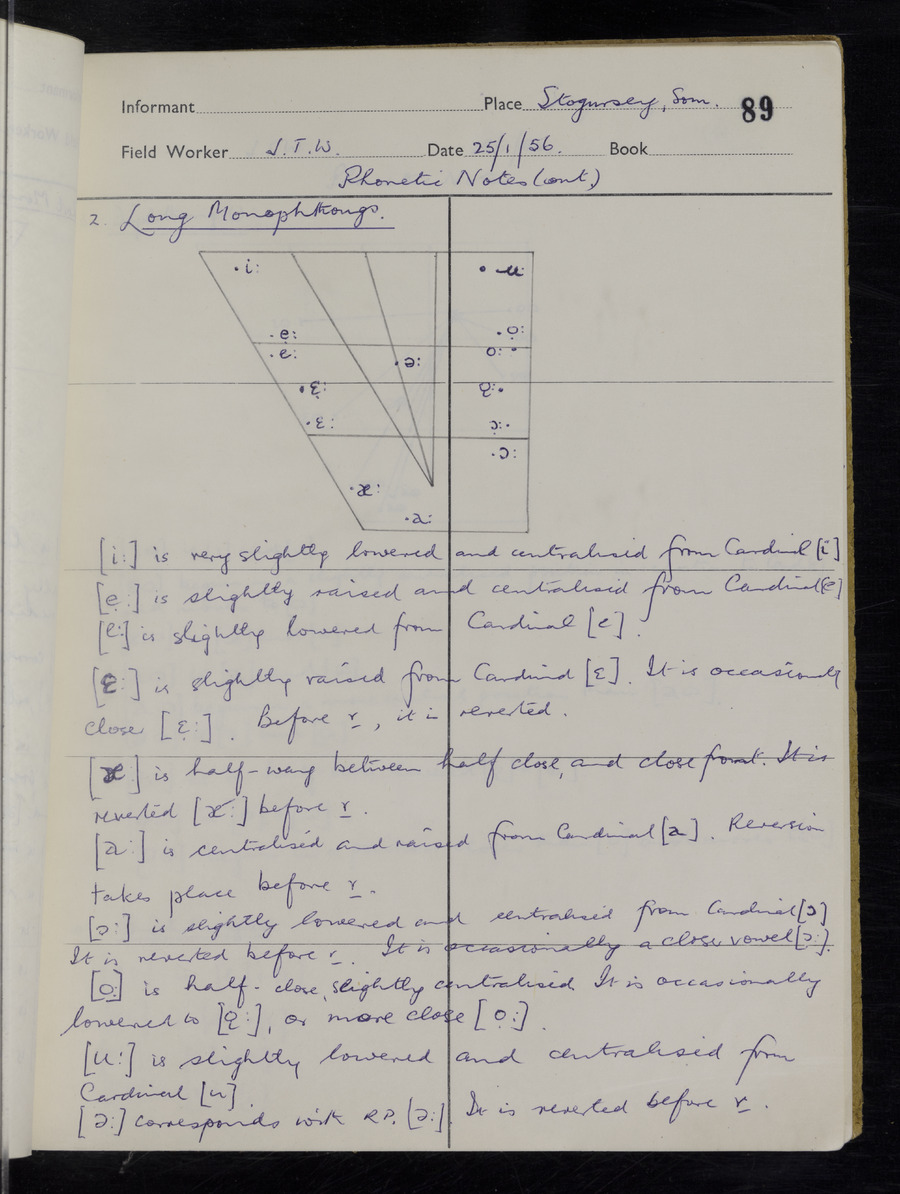 Informant Place Stogursey, Som. 89
Field Worker J.T.W. Date 25/1/56. Book
Phonetic Notes (cont.)
2. Long Monophthongs.
i: u:
e̝: o̝:
e: o:
ə:
ɛ̝: o̞:
ɛ: ɔ̝:
ɔ:
æ:
a:
[i:] is very slightly lowered and centralised from Cardinal [i]
[e̝:] is slightly raised and centralised from Cardinal [e]
[e:] is slightly lowered from Cardinal [e].
[ɛ:] is slightly raised from Cardinal [ɛ]. It is occasionally
close [ɛ̝:]. Before r, it is reverted.
[æ:] is half-way between half close, and close front. It is
reverted [æ:] before r.
[a:] is centralised and raised from Cardinal [a]. Reversion
takes place before r.
[ɔ:] is slightly lowered and centralised from Cardinal [ɔ]
It is reverted before r. It is occasionally a close vowel [ɔ̝:].
[o:] is half-close, slightly centralised. It is occasionally
lowered to [o̞:], or more close [o̝:].
[u:] is slightly lowered and centralised from
Cardinal [u]
[ə:] corresponds with R.P. [ə:]. It is reverted before r.